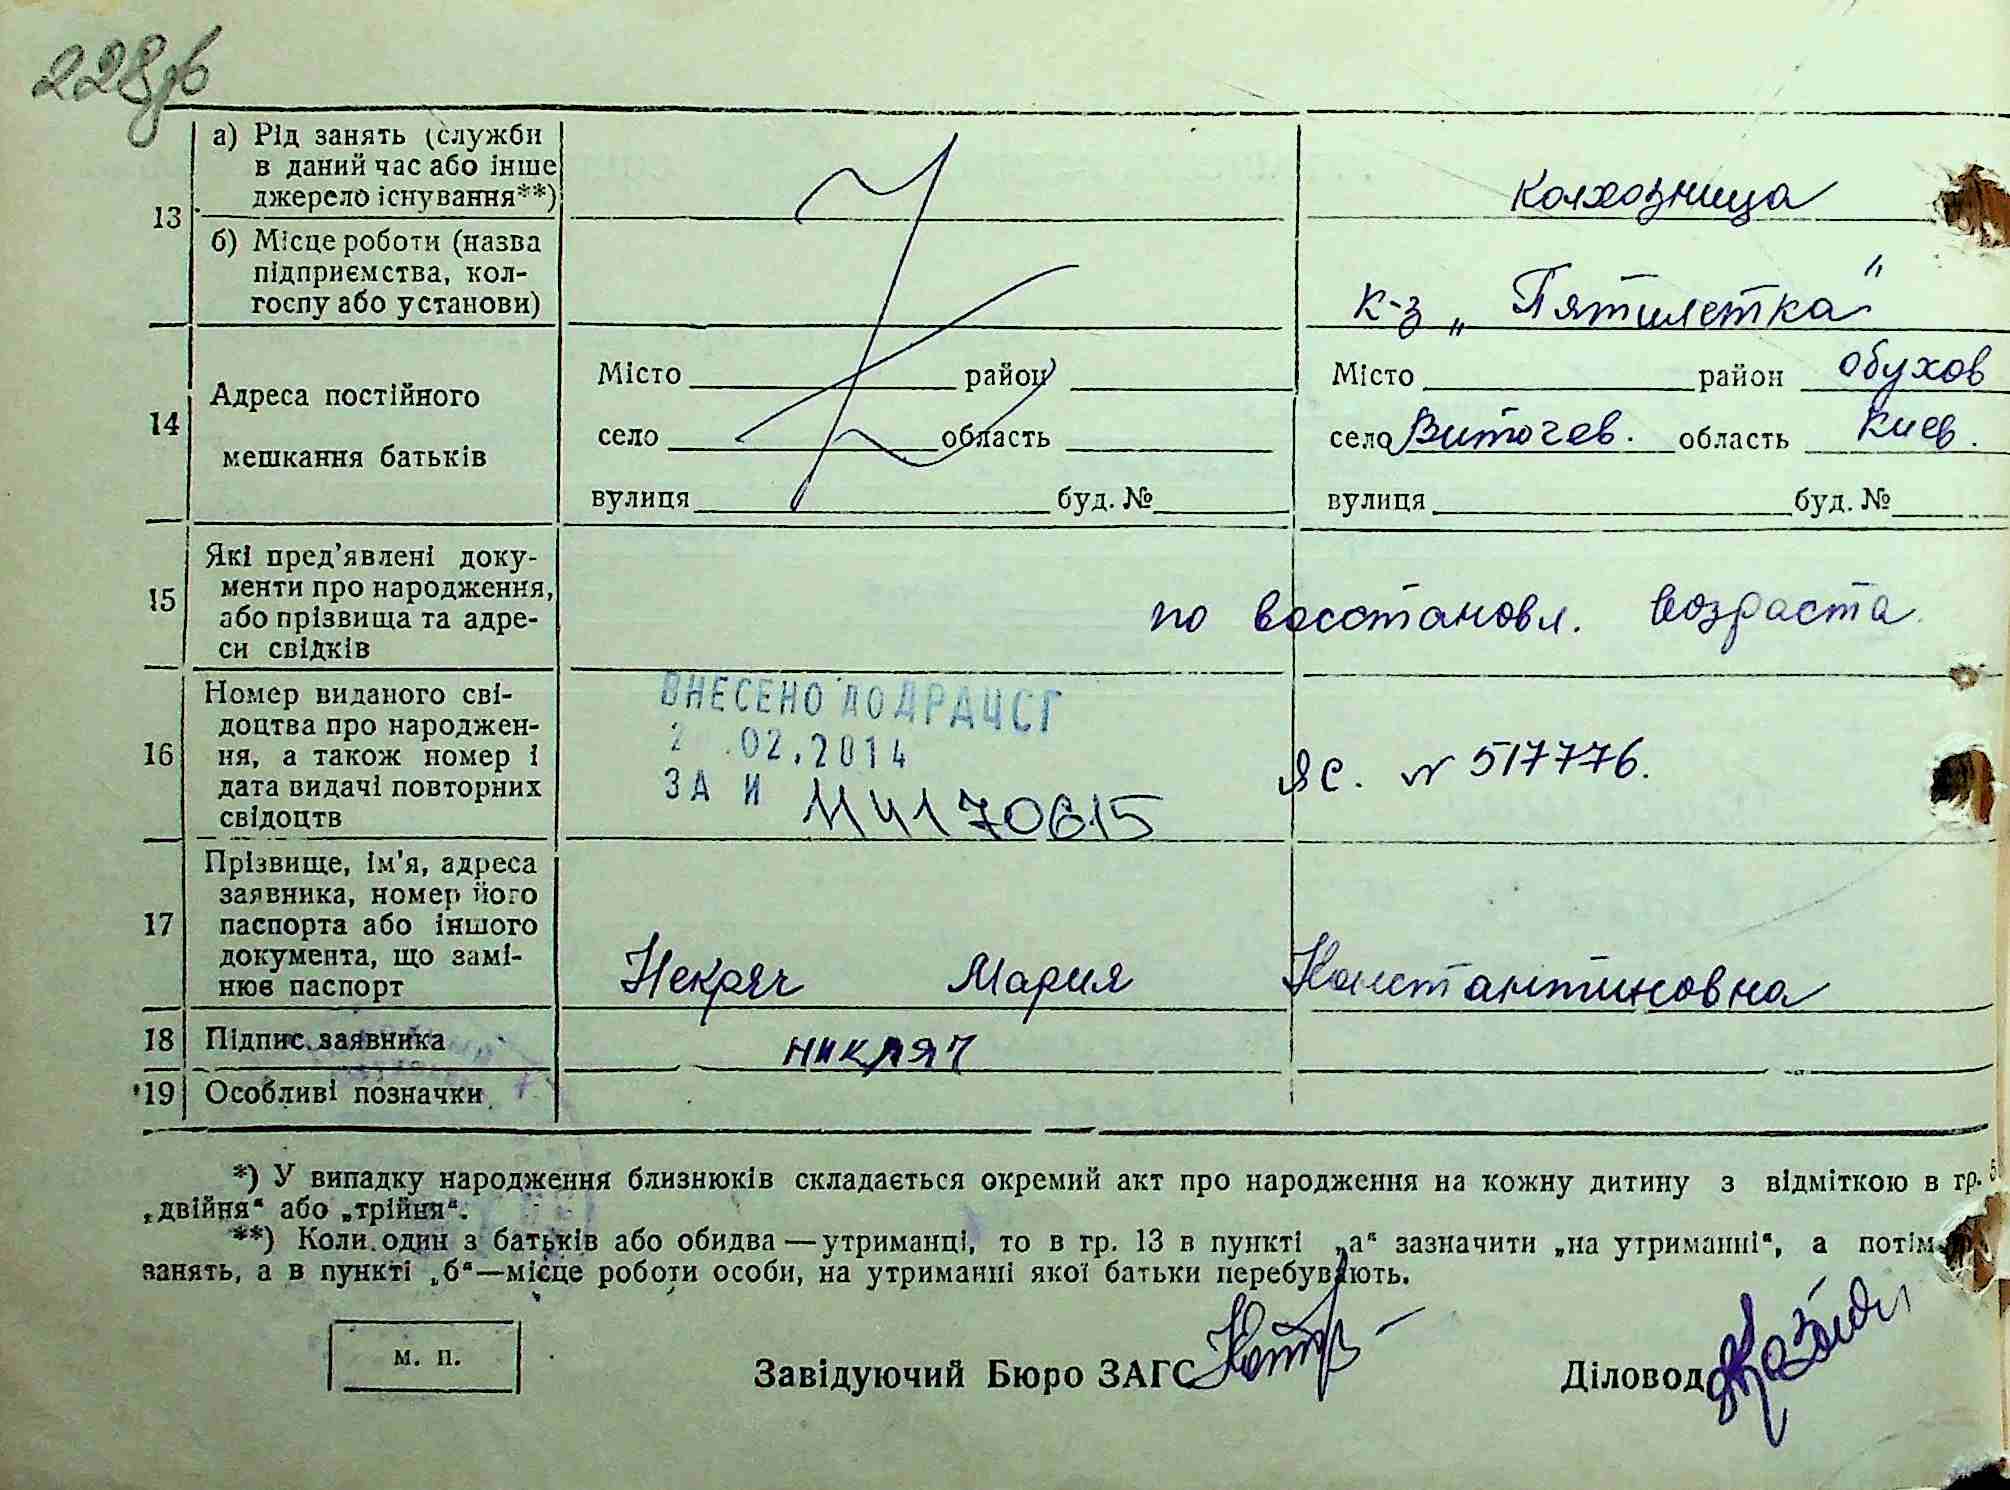 228
а) Рід занять (служби
в даний час або інше
джерело існування**)
колхозница
13
б) Місце роботи (назва
підприємства, кол-
госпу або установи)
к-з „Пятилетка"
14
Адреса постійного
мешкання батьків
Місто район
село область
вулиця буд. №
Місто район Обухов
село Витачев. область Киев.
вулиця буд. №
15
Які пред'явлені доку-
менти про народження,
або прізвища та адре-
си свідків
по восстановл. возраста
16
Номер виданого сві-
доцтва про народжен-
ня, а також номер і
дата видачі повторних
свідоцтв
ВНЕСЕНО ДО ДРАЦСГ
2 .02.2014
ЗА №
ЯС. № 517776.
17
Прізвище, ім'я, адреса
заявника, номер його
паспорта або іншого
документа, що замі-
нює паспорт
Некряч Мария Константиновна
18 Підпис заявника
никряч
19 Особливі позначки
*) У випадку народження близнюків складається окремий акт про народження на кожну дитину з відміткою в гр. 5
„двійня" або „трійня".
**) Коли один з батьків або обидва — утриманці, то в гр. 13 в пункті „а" зазначити „на утриманні", а потім
занять, а в пункті „б"—місце роботи особи, на утриманні якої батьки перебувають.
м. п.
Завідуючий Бюро ЗАГС
Діловод